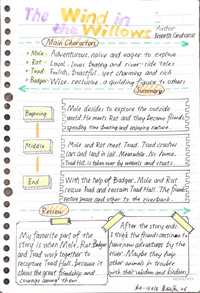 The Wind in
the Willows
Author
Kenneth Grahame
Main Characters
• Mole - Adventurous, naive and eager to explore
• Rat - Loyal, loves boating and river-side tales
• Toad - Foolish, boastful, yet charming and rich
• Badger - Wise, reclusive, a guiding figure to others
Summary
Beginning
Mole decides to explore the outside
world. He meets Rat and they become friends,
spending time boating and enjoying nature.
Middle
Mole and Rat meet Toad. Toad crashes
cars and land in jail. Meanwhile, his
Toad Hall, is taken over by weasels and stoats.
End
With the help of Badger, Mole and Rat
rescue Toad and reclaim Toad Hall. The friends
restore peace and other to the riverbank.
Review
My favourite part of the
story is when Mole, Rat, Badger
and Toad work together to
recapture Toad Hall, because it
shows the great friendship and
courage among them.
After the story ends,
I think the friends continue to
have new adventures by the
river. Maybe they help
other animals in trouble
with their wisdom and kindness.